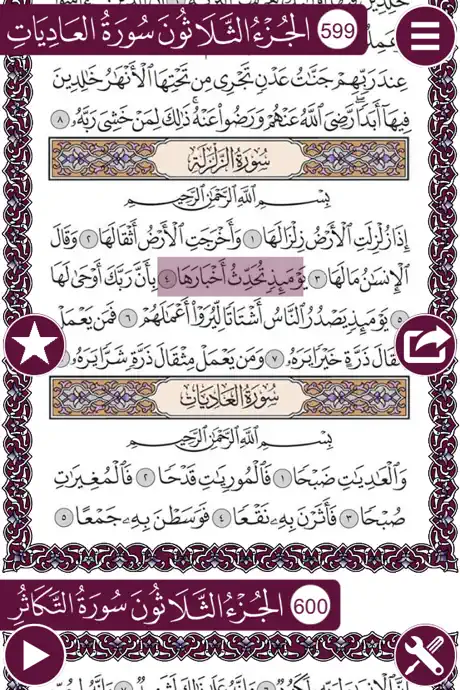 الجُزْءُ الثَّلَاثُونَ سُورَةُ العَادِيَاتِ 599
عِندَ رَبِّهِمْ جَنَّٰتُ عَدْنٍ تَجْرِي مِن تَحْتِهَا ٱلْأَنْهَٰرُ خَٰلِدِينَ
فِيهَآ أَبَدًا ۖ رَّضِيَ ٱللَّهُ عَنْهُمْ وَرَضُوا۟ عَنْهُ ۚ ذَٰلِكَ لِمَنْ خَشِيَ رَبَّهُۥ ٨
سُورَةُ الزَّلْزَلَةِ
بِسْمِ ٱللَّهِ ٱلرَّحْمَٰنِ ٱلرَّحِيمِ
إِذَا زُلْزِلَتِ ٱلْأَرْضُ زِلْزَالَهَا ١ وَأَخْرَجَتِ ٱلْأَرْضُ أَثْقَالَهَا ٢ وَقَالَ
ٱلْإِنسَٰنُ مَا لَهَا ٣ يَوْمَئِذٍ تُحَدِّثُ أَخْبَارَهَا ٤ بِأَنَّ رَبَّكَ أَوْحَىٰ لَهَا
٥ يَوْمَئِذٍ يَصْدُرُ ٱلنَّاسُ أَشْتَاتًا لِّيُرَوْا۟ أَعْمَٰلَهُمْ ٦ فَمَن يَعْمَلْ
مِثْقَالَ ذَرَّةٍ خَيْرًا يَرَهُۥ ٧ وَمَن يَعْمَلْ مِثْقَالَ ذَرَّةٍ شَرًّا يَرَهُۥ
سُورَةُ العَادِيَاتِ
بِسْمِ ٱللَّهِ ٱلرَّحْمَٰنِ ٱلرَّحِيمِ
وَٱلْعَٰدِيَٰتِ ضَبْحًا ١ فَٱلْمُورِيَٰتِ قَدْحًا ٢ فَٱلْمُغِيرَٰتِ
صُبْحًا ٣ فَأَثَرْنَ بِهِۦ نَقْعًا ٤ فَوَسَطْنَ بِهِۦ جَمْعًا ٥
الجُزْءُ الثَّلَاثُونَ سُورَةُ التَّكَاثُرِ 600